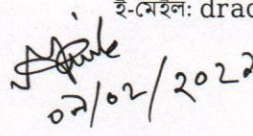 ই-মেইল: drac
০৯/০২/২০২২